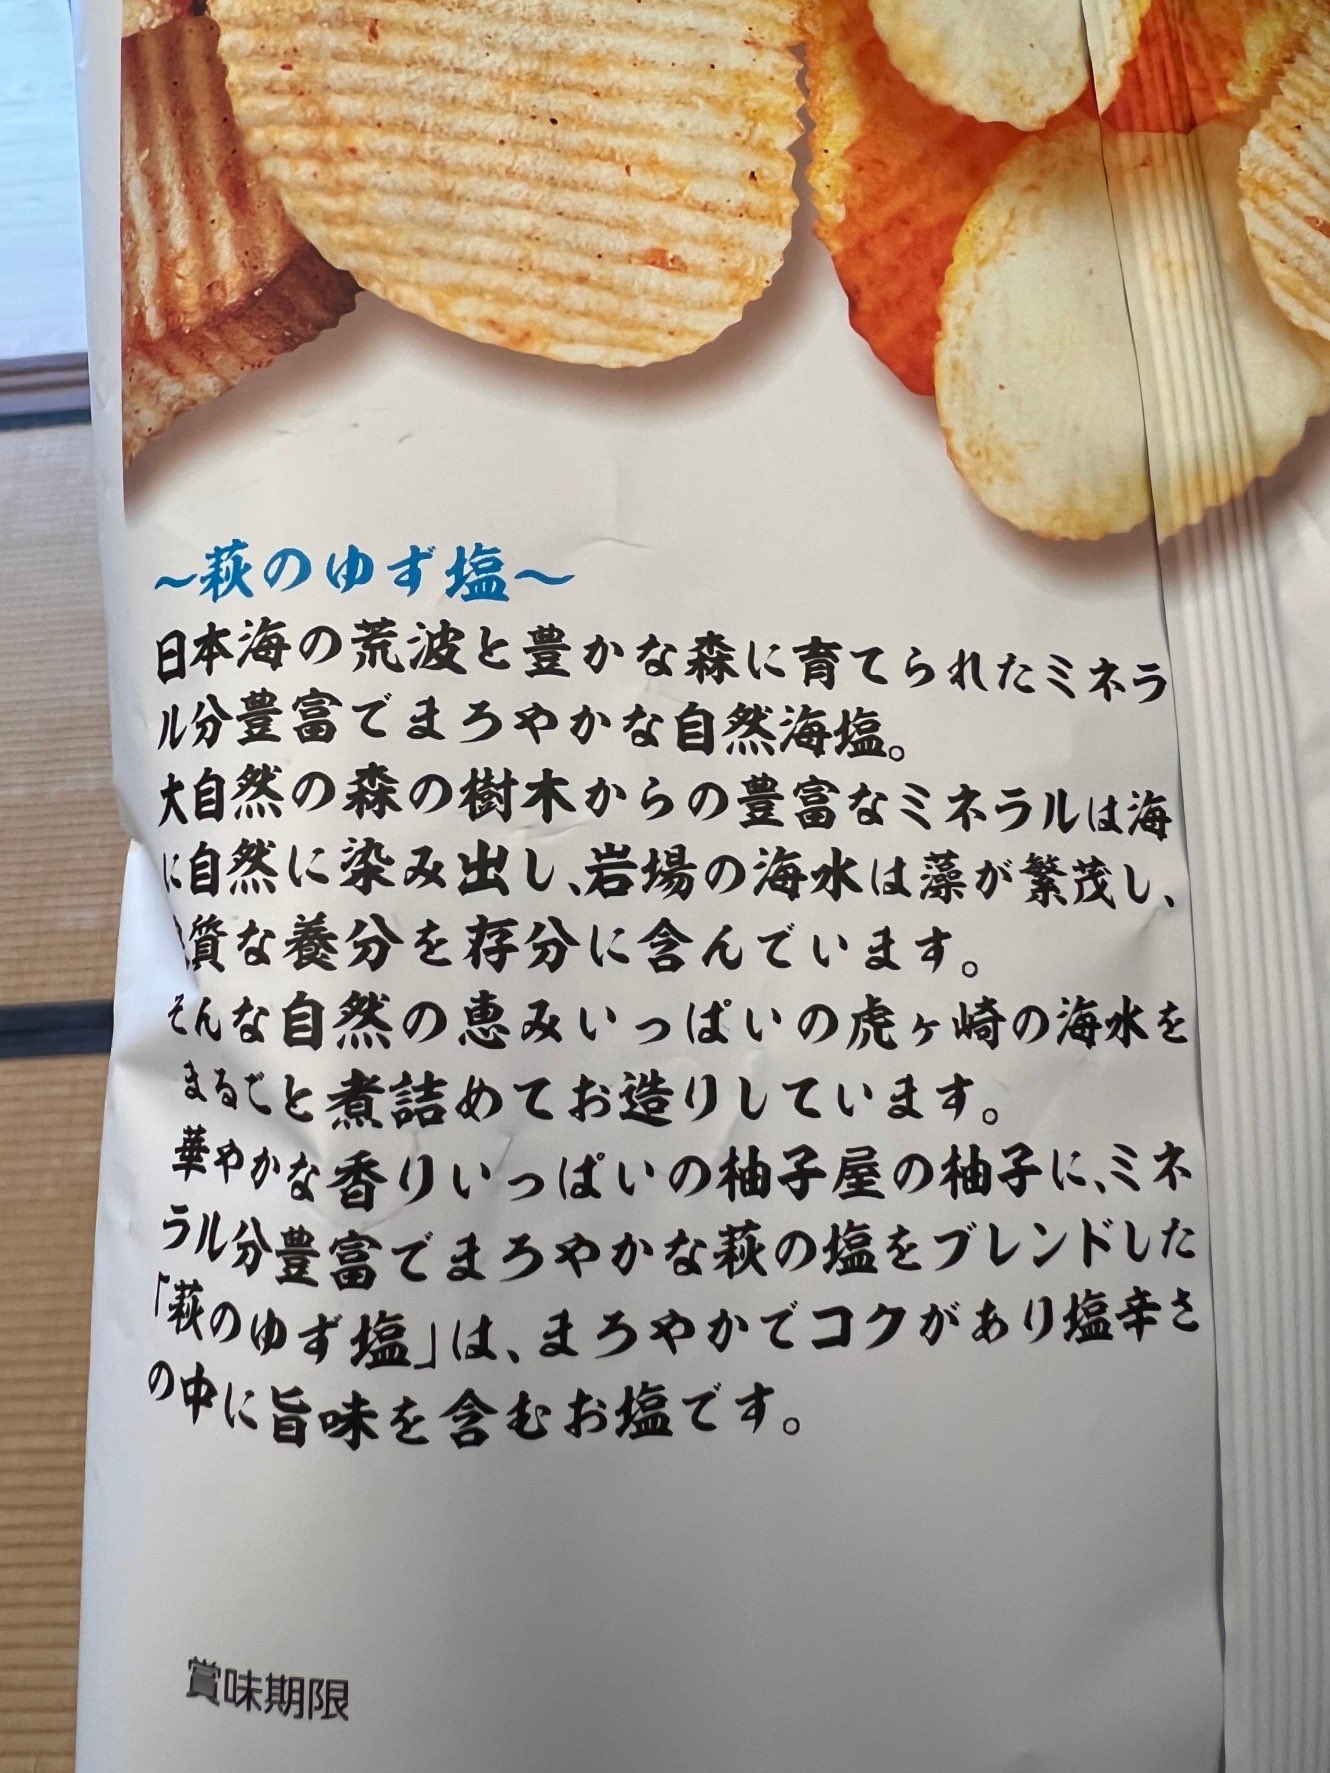 ～萩のゆず塩～
日本海の荒波と豊かな森に育てられたミネラ
ル分豊富でまろやかな自然海塩。
大自然の森の樹木からの豊富なミネラルは海
に自然に染み出し、岩場の海水は藻が繁茂し、
質な養分を存分に含んでいます。
そんな自然の恵みいっぱいの虎ヶ崎の海水を
まるごと煮詰めてお造りしています。
華やかな香りいっぱいの柚子屋の柚子に、ミネ
ラル分豊富でまろやかな萩の塩をブレンドした
「萩のゆず塩」は、まろやかでコクがあり塩辛さ
の中に旨味を含むお塩です。
賞味期限